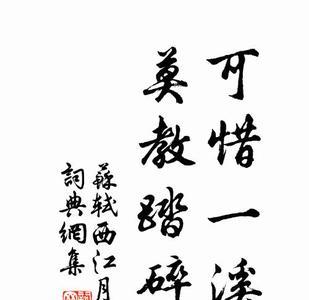 可惜一溪
莫教踏碎
蘇軾西江月
詞典網集